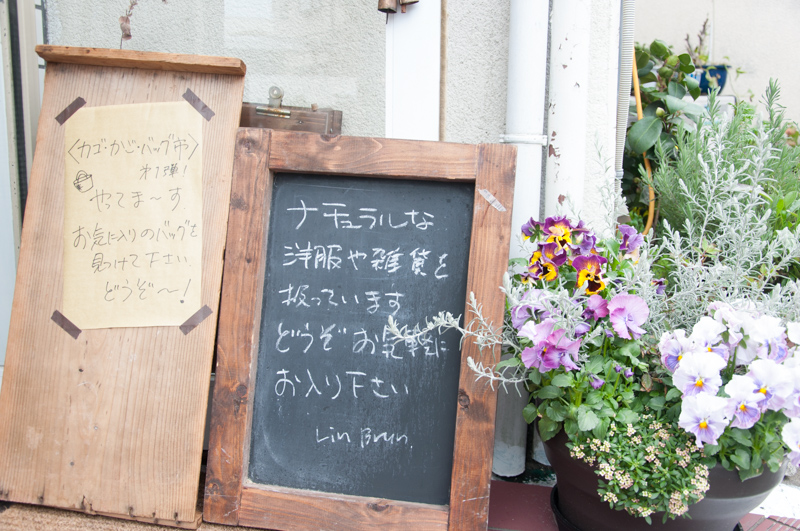 〈カゴ・かご・バッグ市〉
第1弾!
やってま〜す
お気に入りのバッグを
見けて下さい
どうぞ〜!
ナチュラルな
洋服や雑貨を
扱っています
どうぞお気軽に
お入り下さい
Lin Brun.